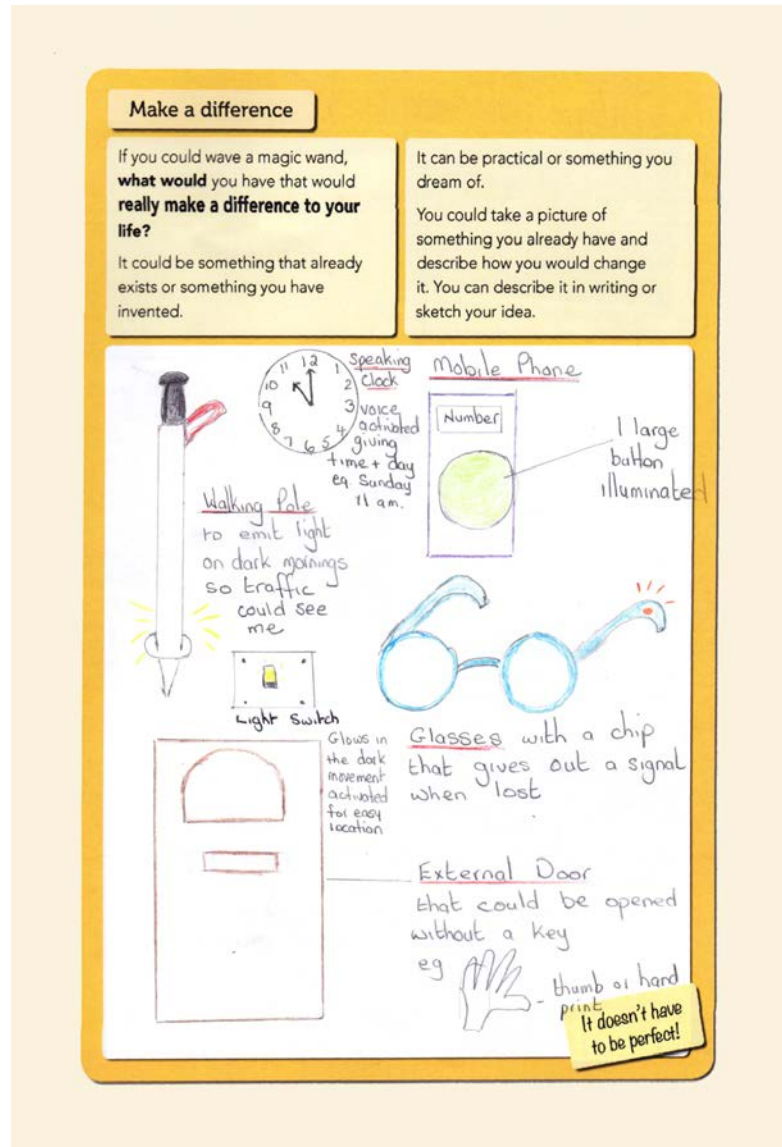 Make a difference
If you could wave a magic wand,
what would you have that would
really make a difference to your
life?
It could be something that already
exists or something you have
invented.
It can be practical or something you
dream of.
You could take a picture of
something you already have and
describe how you would change
it. You can describe it in writing or
sketch your idea.
11 12 1
10 2
9 3
8 4
7 6 5
Speaking
Clock
voice
activated
giving
time + day
eg Sunday
11 am.
Mobile Phone
Number
1 large
button
illuminated
Walking Pole
to emit light
on dark mornings
so traffic
could see
me
Light Switch
Glows in
the dark
movement
activated
for easy
location
Glasses with a chip
that gives out a signal
when lost
External Door
that could be opened
without a key
eg
- thumb or hand
print
It doesn't have
to be perfect!